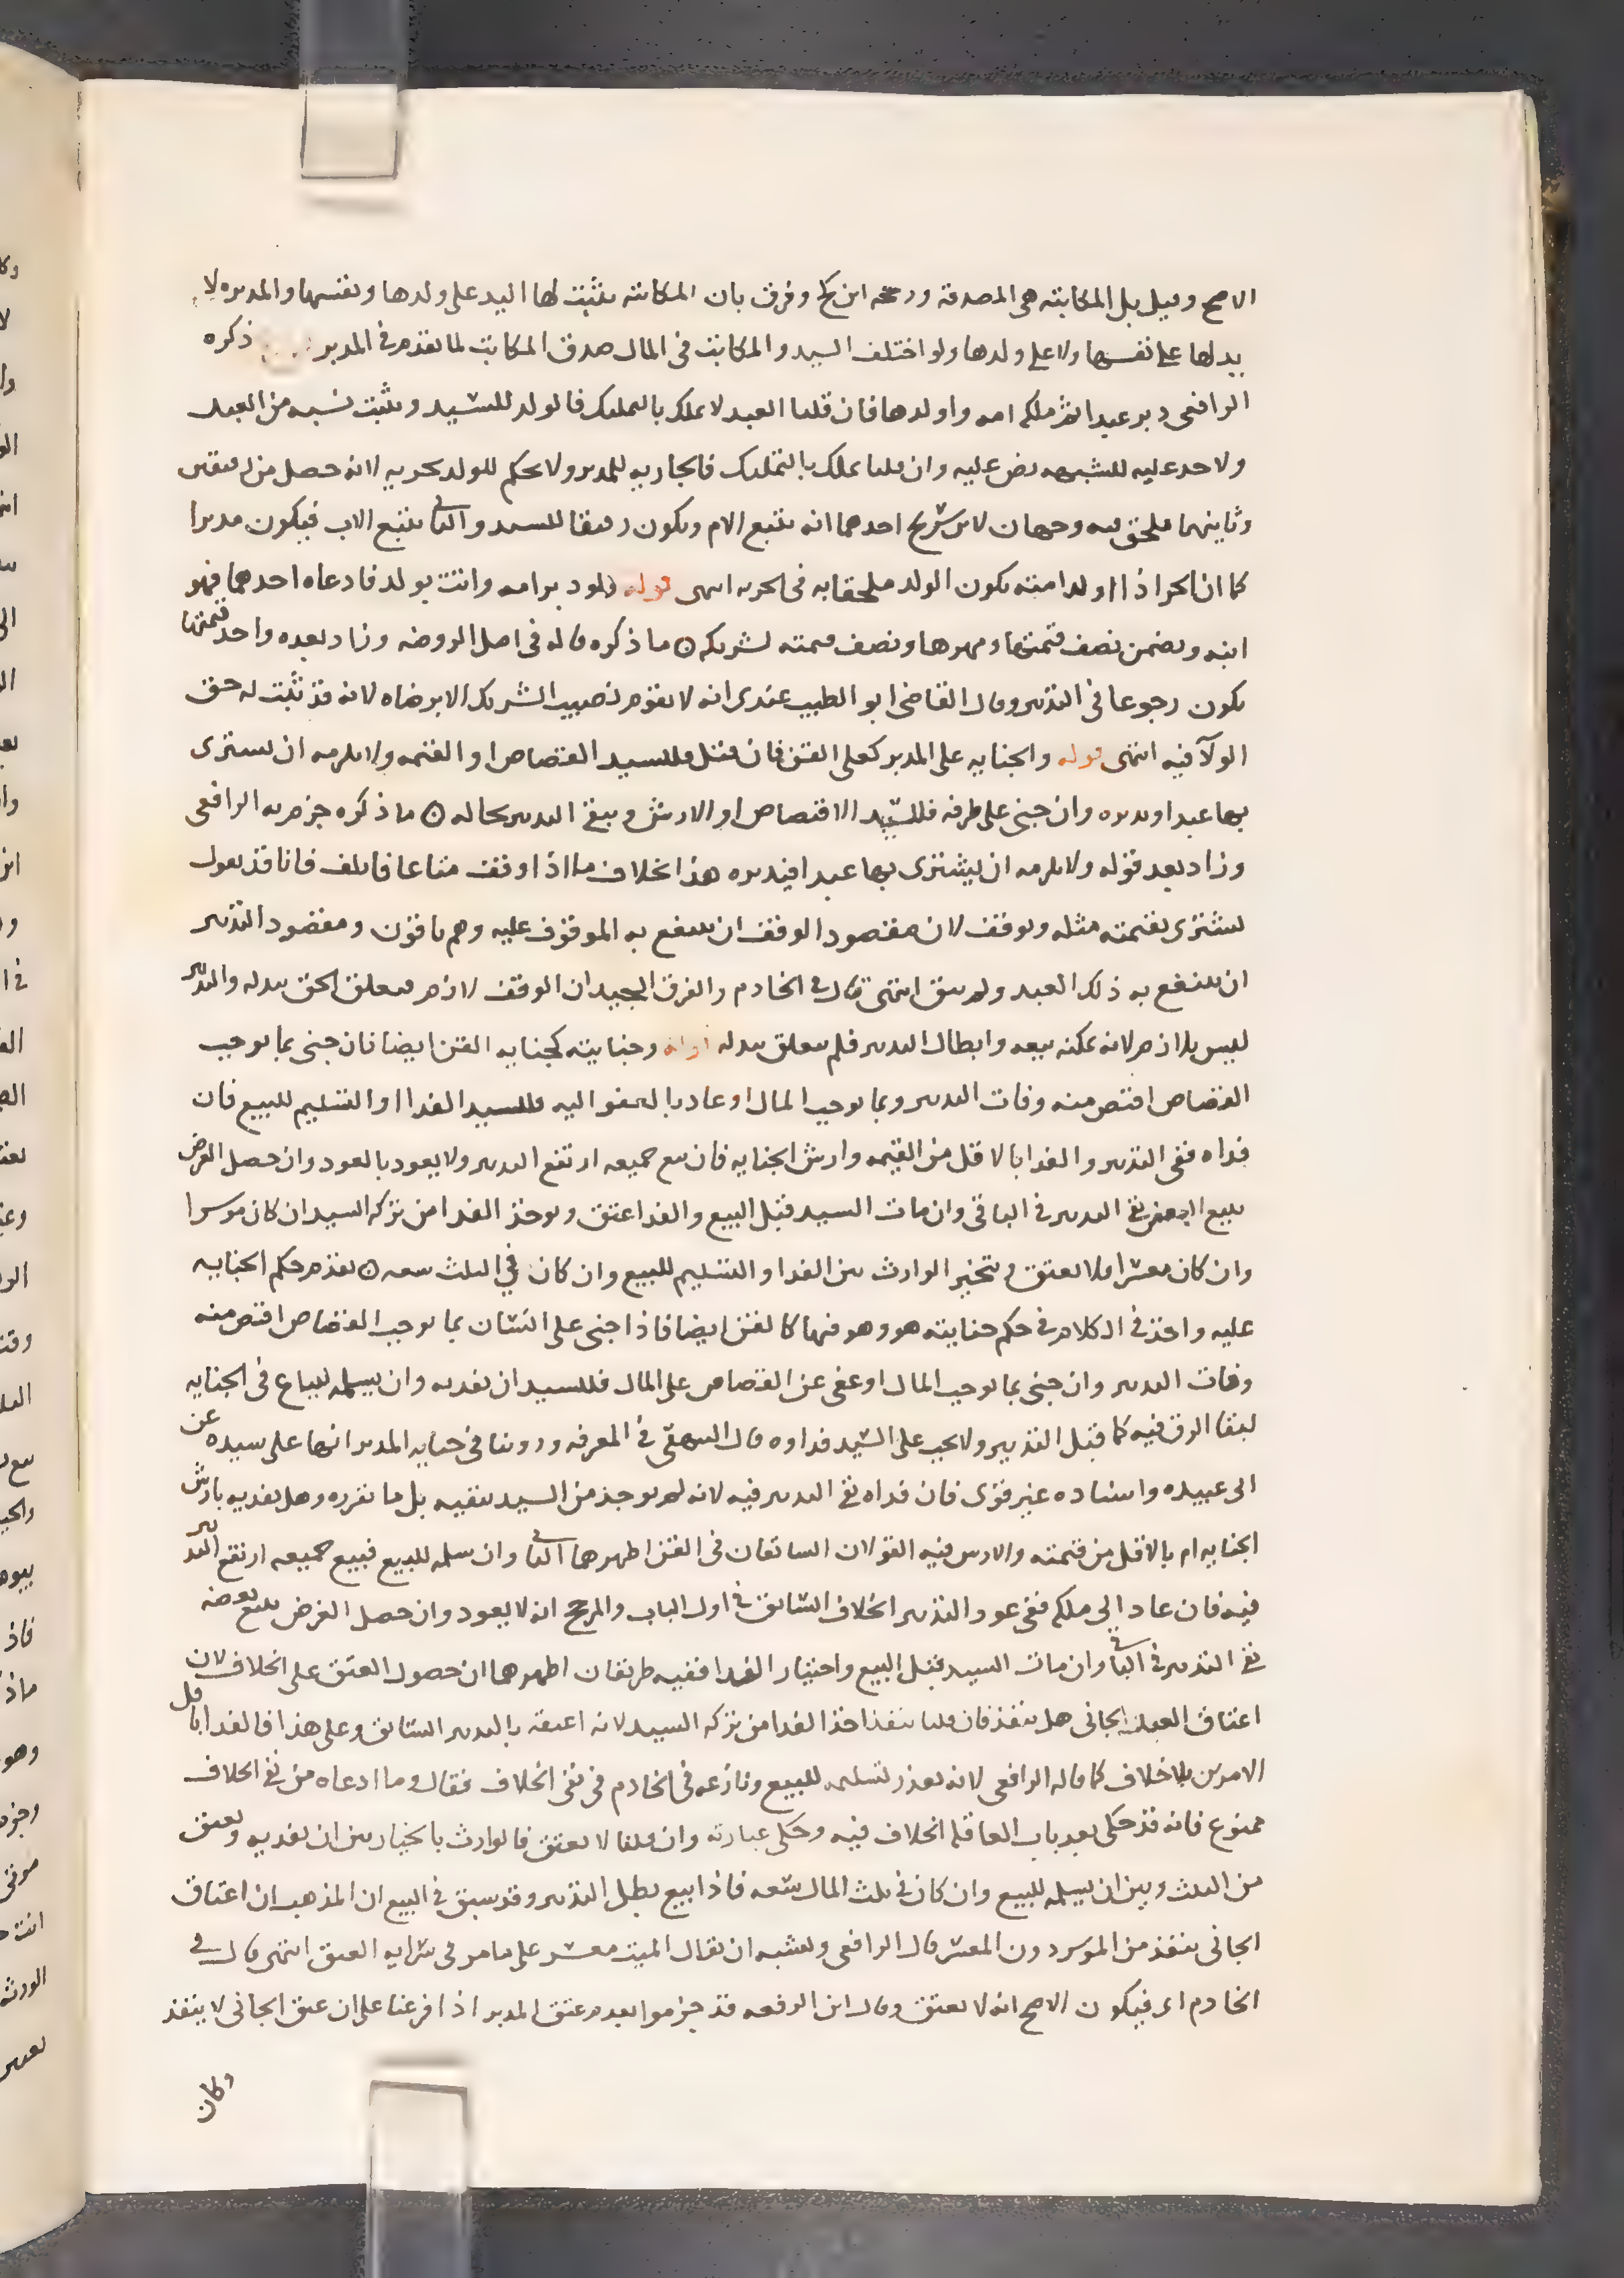 الاصح وقيل بل المكاتبه هي المصدقه ورجحه ابن كج وفرق بان المكاتبه يثبت لها اليد على ولدها ونفسها والمدبره لا
يد لها على نفسها ولا على ولدها ولو اختلف السيد والمكاتب في المال صدق المكاتب لما تقدم في المدبر ذكره
الرافعي دبر عبدا ثم ملكه امه واولدها فان قلنا العبد لا يملك بالتمليك فالولد للسيد ويثبت نسبه من العبد
ولا حد عليه للشبهه نص عليه وان قلنا يملك بالتمليك فالجاريه للمدبر ولا يحكم للولد بحريه لانه حصل من رقيقين
وثانيهما ملحق فيه وجهان لابن شريح احدهما انه يتبع الام ويكون رقيقا للسيد والثاني يتبع الاب فيكون مدبرا
كما ان الحر اذا اولد امته يكون الولد ملحقا به في الحريه انتهى قوله ولو دبرا امه واتت بولد فادعاه احدهما فهو
ابنه ويضمن نصف قيمتها ومهرها ونصف قيمته لشريكه ۞ ما ذكره قاله في اصل الروضه وزاد بعده واخذ قيمتها
يكون رجوعا في التدبير وقال القاضي ابو الطيب عندي انه لا يقوم نصيب الشريك الا برضاه لانه قد ثبت له حق
الولآ فيه انتهى قوله والجنايه على المدبر كعلى القن فان قتل فللسيد القصاص او القيمه ولا يلزمه ان يسترى
بها عبدا ويدبره وان جنى على طرفه فللسيد الاقتصاص او الارش ويبقى التدبير بحاله ۞ ما ذكره جزم به الرافعي
وزاد بعد قوله ولا يلزمه ان يشترى بها عبدا فيدبره هذا بخلاف ما اذا وقف متاعا فاتلف فانا قد نقول
يشترى بقيمته مثله ويوقف لان مقصود الوقف ان ينتفع به الموقوف عليه وهم باقون ومقصود التدبير
ان ينتفع به ذلك العبد ولم يبق انتهى قال في الخادم والفرق الجيد ان الوقف لازم فيعلق الحق ببدله والتدبير
ليس بلازم لانه يمكنه بيعه وابطال التدبير فلم يتعلق ببدله قوله وجنايته كجنايه القن ايضا فان جنى بما يوجب
القصاص اقتص منه وفات التدبير وبما يوجب المال او عاد بالعفو اليه فللسيد الفدا او التسليم للبيع فان
فداه ففى التدبير والفدا بالاقل من القيمه وارش الجنايه فان بيع جميعه ارتفع التدبير ولا يعود بالعود وان حصل الغرض
ببيع البعض بقى التدبير في الباقي وان مات السيد قبل البيع والفدا عتق ويوخذ الفدا من تركه السيد ان كان موسرا
وان كان معسرا فلا يعتق ويتخير الوارث بين الفدا والتسليم للبيع وان كان في الثلث سعه ۞ تقدم حكم الجنايه
عليه واخذ في الكلام في حكم جنايته هو وهو فيها كالقن ايضا فاذا جنى على انسان بما يوجب القصاص اقتص منه
وفات التدبير وان جنى بما يوجب المال او عفى عن القصاص على المال فللسيد ان يفديه وان يسلمه ليباع في الجنايه
لبقا الرق فيه كما قبل التدبير ولا يجب على السيد فداوه قال البيهقي في المعرفه وروينا في جنايه المدبر انها على سيده عن
ابى عبيده واسناده غير قوى فان فداه بقى التدبير فيه لانه لم يوجد من السيد ينقيه بل ما نقرره وهل يفديه بارش
الجنايه ام بالاقل من قيمته والارش فيه القولان السابقان في القن اظهرهما الثاني وان سلمه للبيع فبيع جميعه ارتفع التدبير
فيه فان عاد الى ملكه ففى عود التدبير الخلاف السابق في اول الباب والمرجح انه لا يعود وان حصل الغرض ببيع بعضه
بقى التدبير في الباقي وان مات السيد قبل البيع واختيار الفدا ففيه طريقان اظهرهما ان حصول العتق على الخلاف لان
اعتاق العبد الجاني هل ينفذ فان قلنا ينفذ اخذ الفدا من تركه السيد لانه اعتقه بالتدبير السابق وعلى هذا فالفدا باقل
الامرين بلا خلاف كما قاله الرافعي لانه تعذر تسليمه للبيع ونازعه في الخادم في نفى الخلاف فقال وما ادعاه من نفى الخلاف
ممنوع فانه قد حكى بعد باب العاقله الخلاف فيه وحكى عبارته وان قلنا لا يعتق فالوارث بالخيار بين ان يفديه ويعتق
من الثلث وبين ان يسلمه للبيع وان كان في ثلث المال سعه فاذا بيع بطل التدبير وقد سبق في البيع ان المذهب ان اعتاق
الجاني ينفذ من الموسر دون المعسر قال الرافعي ويشبه ان يقال الميت معسر على ما مر في سرايه العتق انتهى قال في
الخادم اى فيكون الاصح انه لا يعتق وقال ابن الرفعه قد جزموا بعدم عتق المدبر اذا فرعنا على ان عتق الجاني لا ينفذ
وكان